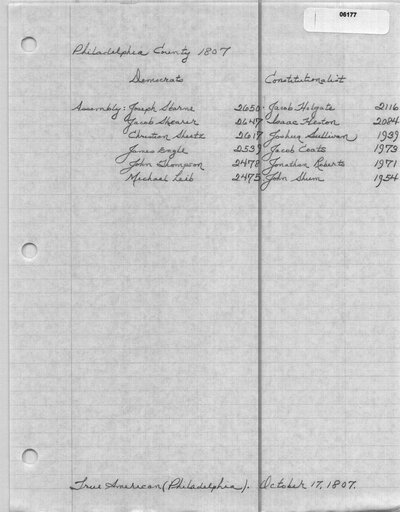 06177
Philadelphia County 1807
Democrats Constitutionalist
Assembly: Joseph Starne 2650 Jacob Holgate 2116
Jacob Shearer 2647 Isaac Heston 2084
Christian Sheetz 2617 Joshua Sullivan 1999
James Engle 2539 Jacob Coats 1973
John Thompson 2478 Jonathan Roberts 1971
Michael Leib 2475 John Shum 1954
True American (Philadelphia). October 17, 1807.